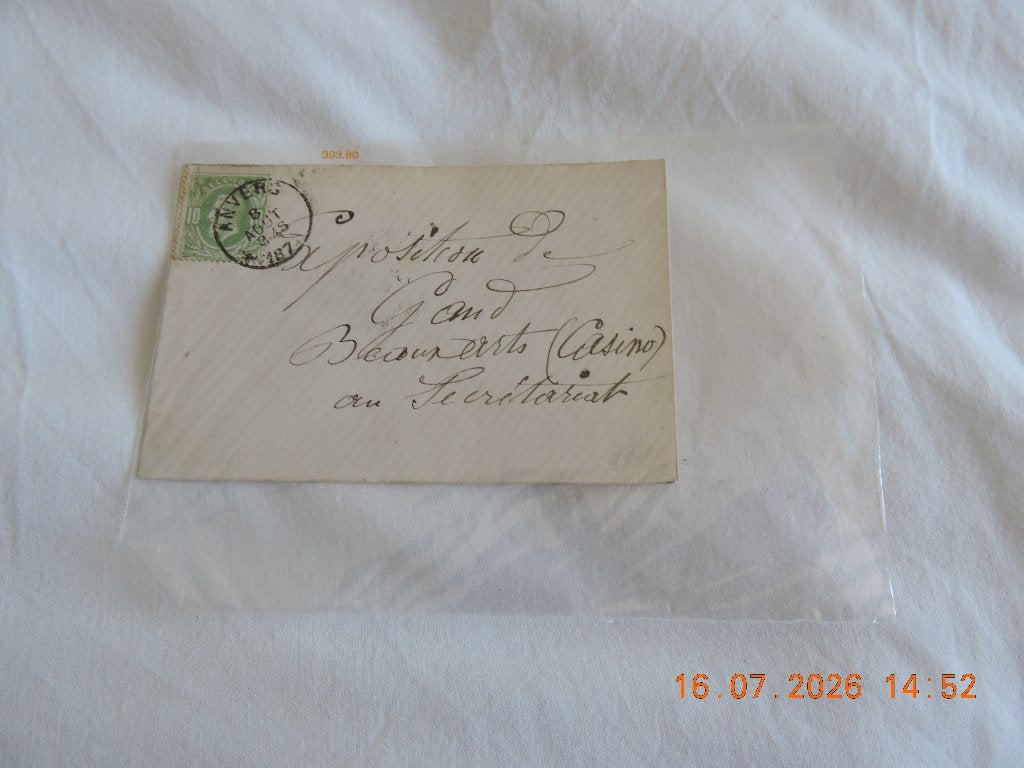 393.80
10
ANVERS
8
AOUT
9-M S
187
Exposition de
Gand
Beaux arts (Casino)
au Secrétariat
16.07.2026 14:52